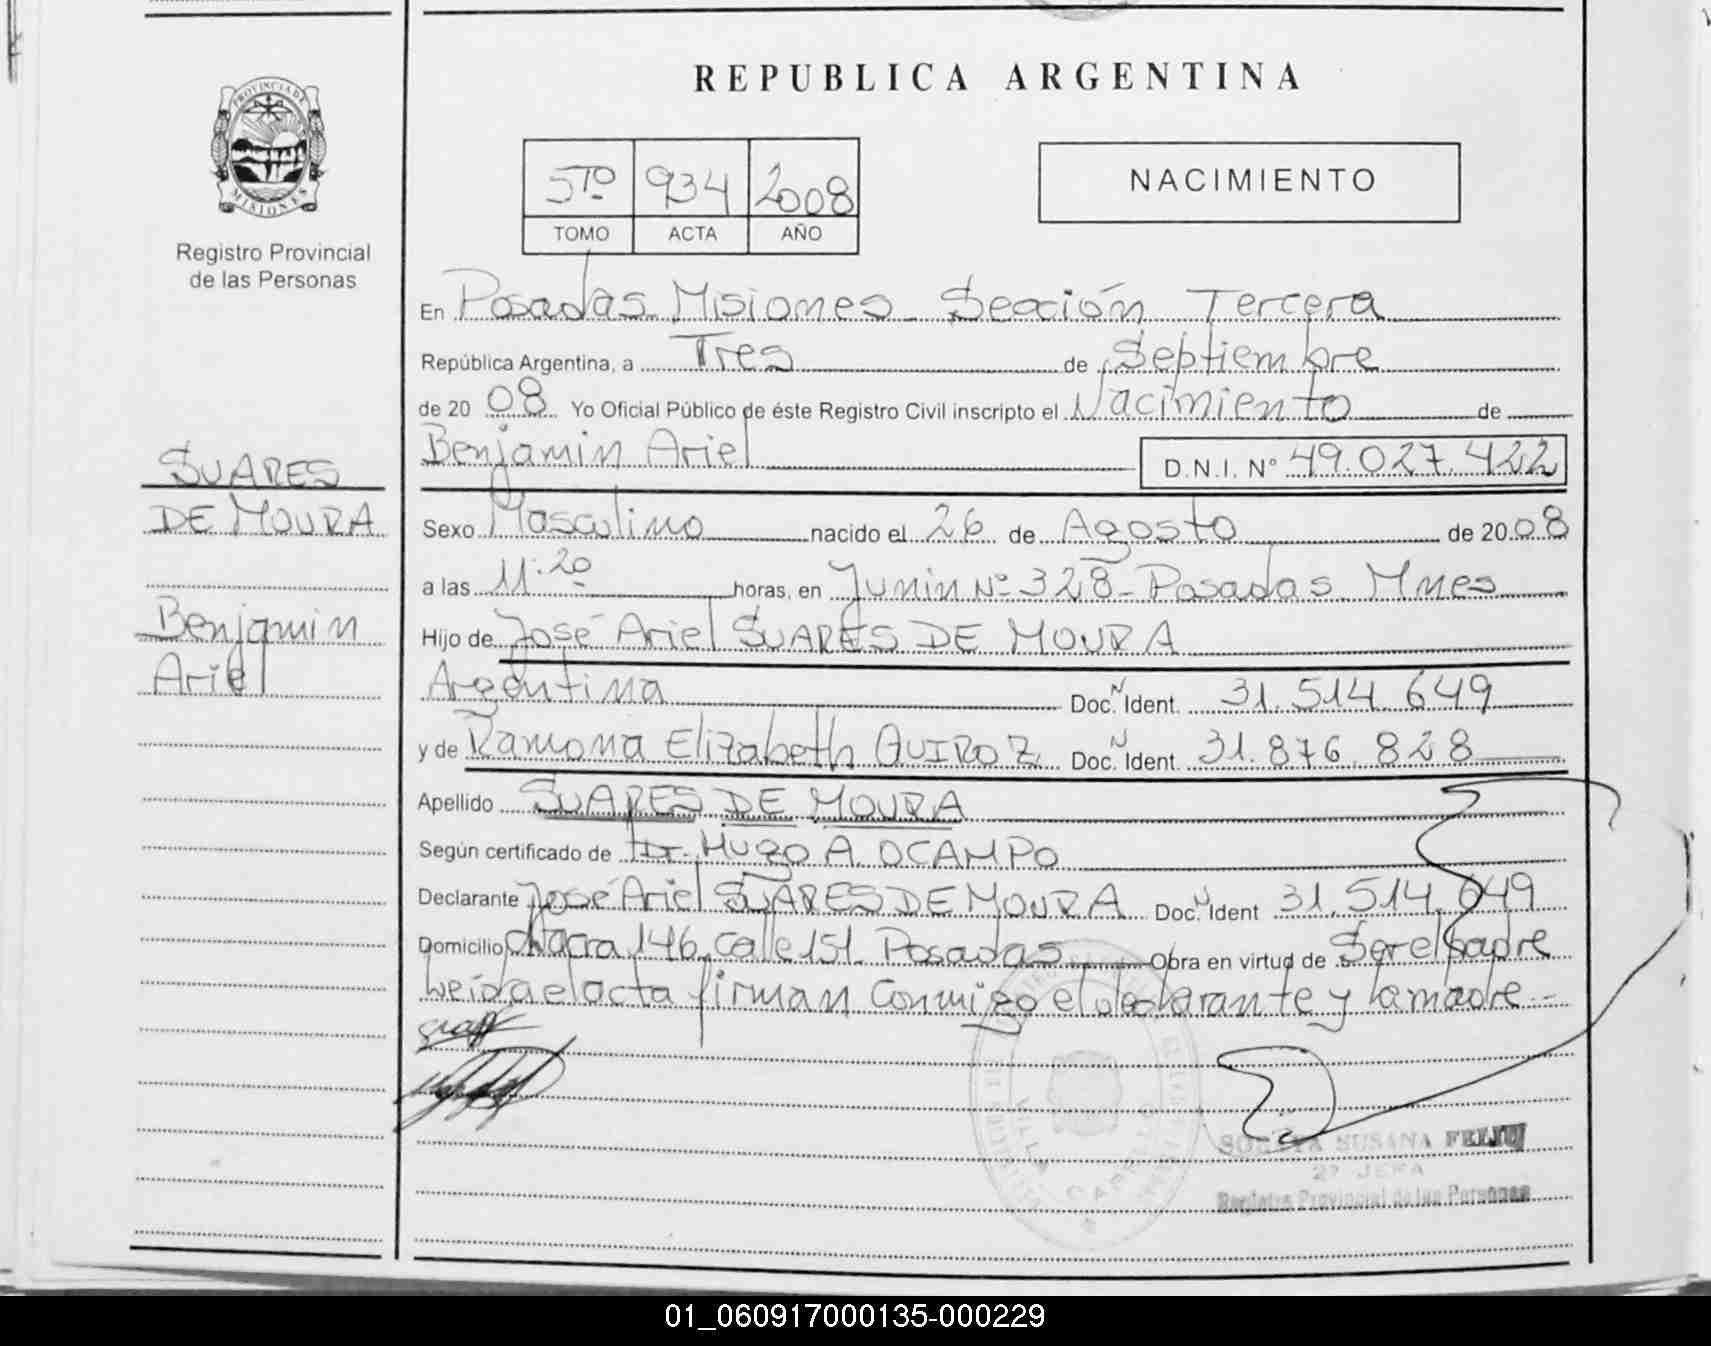 REPUBLICA ARGENTINA
PROVINCIA DE
MISIONES
Registro Provincial
de las Personas
5TO 934 2008
TOMO ACTA AÑO
NACIMIENTO
En Posadas Misiones - Sección Tercera
República Argentina, a Tres de Septiembre
de 2008 Yo Oficial Público de éste Registro Civil inscripto el Nacimiento de
Benjamin Ariel D.N.I. N° 49.027.422
SUARES
DE MOURA
Benjamin
Ariel
Sexo Masculino nacido el 26 de Agosto de 2008
a las 11:20 horas, en Junin N° 328 - Posadas Mnes
Hijo de José Ariel SUARES DE MOURA
Argentina Doc. Ident. 31.514.649
y de Ramona Elizabeth QUIROZ Doc. Ident. 31.876.828
Apellido SUARES DE MOURA
Según certificado de Dr. HUGO A. OCAMPO
Declarante José Ariel SUARES DE MOURA Doc. Ident 31.514.649
Domicilio Chacra 146 calle 151 Posadas Obra en virtud de Ser el padre
Leída el acta firman conmigo el declarante y la madre.-
SUSANA FEIJU
2° JEFA
Registro Provincial de las Personas
01_060917000135-000229